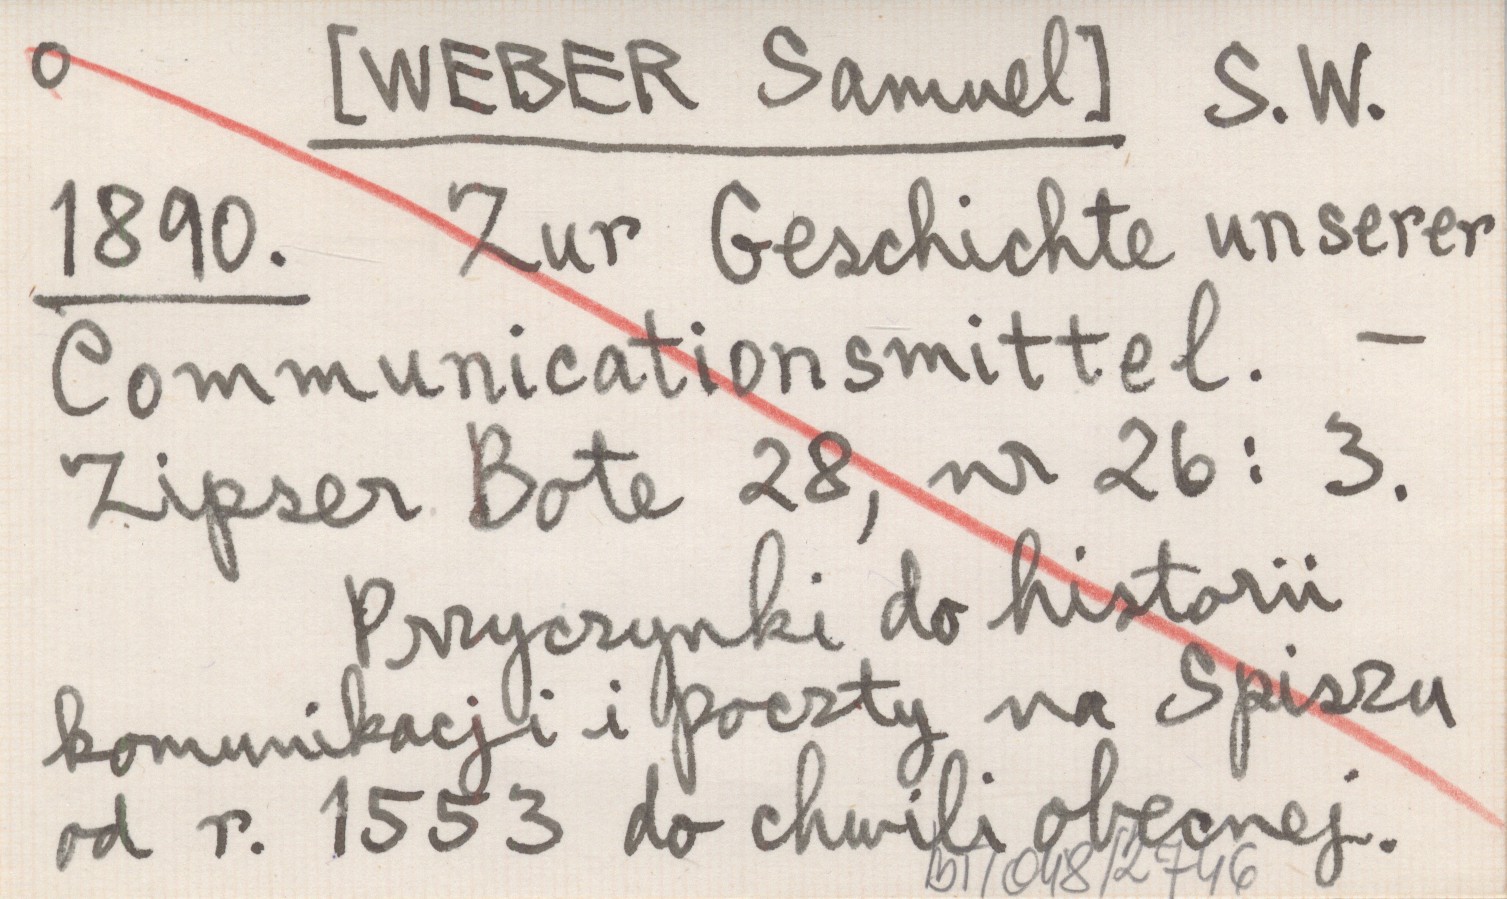 o [WEBER Samuel] S.W.
1890. Zur Geschichte unserer
Communicationsmittel. –
Zipser Bote 28, nr 26: 3.
Przyczynki do historii
komunikacji i poczty na Spiszu
od r. 1553 do chwili obecnej.
BT/048/2746